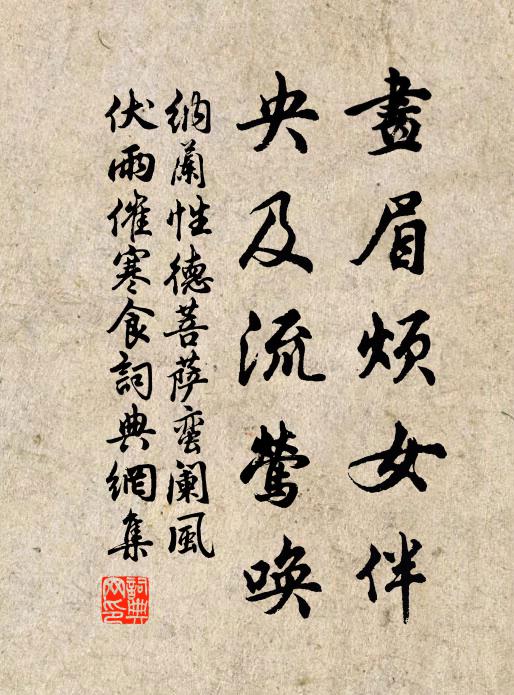 畫眉煩女伴
央及流鶯喚
納蘭性德菩薩蠻闌風
伏雨催寒食詞典網集
詞典網印